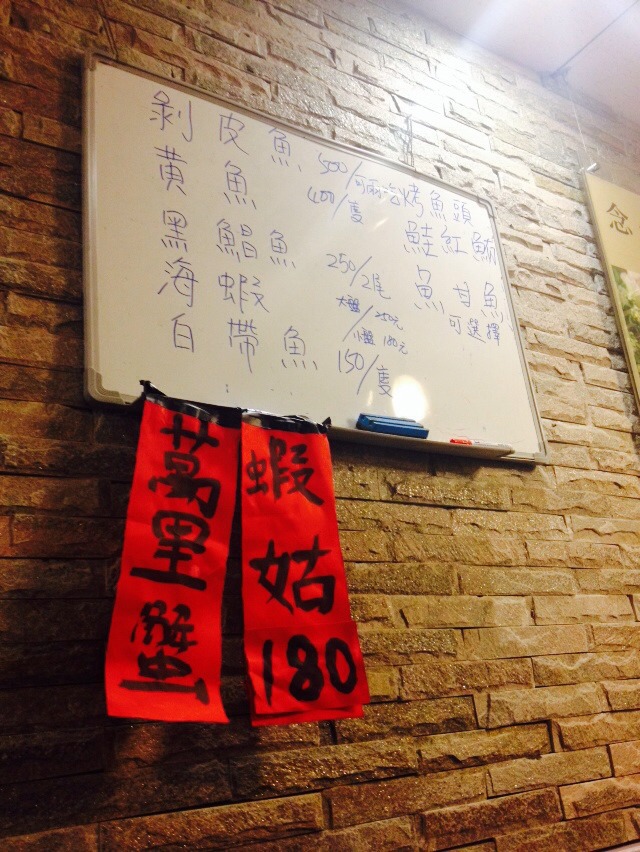 剝皮魚 500/可兩吃
黃魚 400/隻
黑鯧魚 250/2尾
海蝦 大盤/250元
小盤 180元
白帶魚 150/隻
烤魚頭
鮭紅魽
魚
魚
可選擇
萬里蟹
蝦姑
180
念